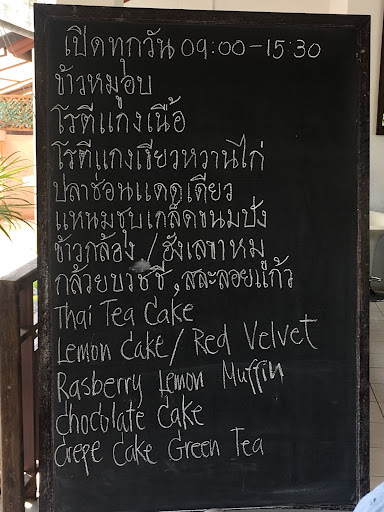 เปิดทุกวัน 09:00-15:30
ข้าวหมูอบ
โรตีแกงเนื้อ
โรตีแกงเขียวหวานไก่
ปลาช่อนแดดเดียว
แหนมชุบเกล็ดขนมปัง
ข้าวกล้อง / ฮังเลขาหมู
กล้วยบวชชี, สละลอยแก้ว
Thai Tea Cake
Lemon Cake / Red Velvet
Rasberry Lemon Muffin
Chocolate Cake
Crepe Cake Green Tea